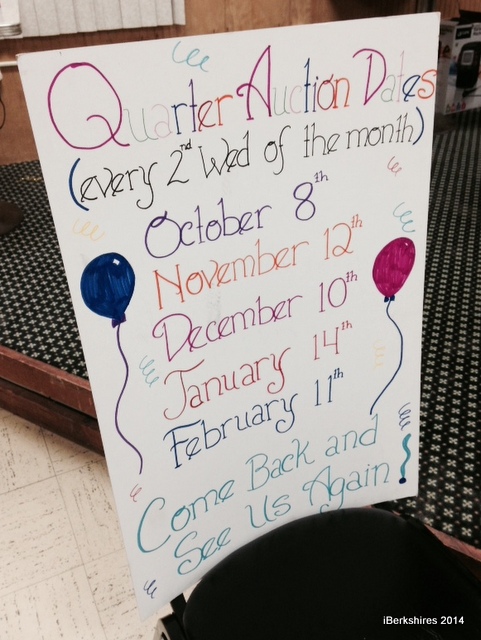 Quarter Auction Dates
(every 2nd Wed of the month)
October 8th
November 12th
December 10th
January 14th
February 11th
Come Back and
See Us Again!
iBerkshires 2014